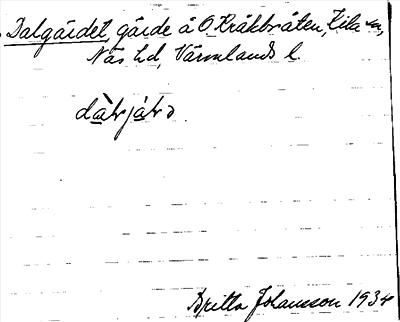 Dalgärdet, gärde å Ö. Kråkbråten, Kila sn,
Näs hd, Värmlands l.
Britta Johansson 1934